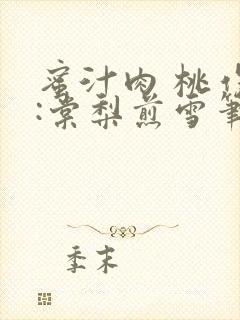 蜜汁肉桃作
:棠梨煎雪笔
季末